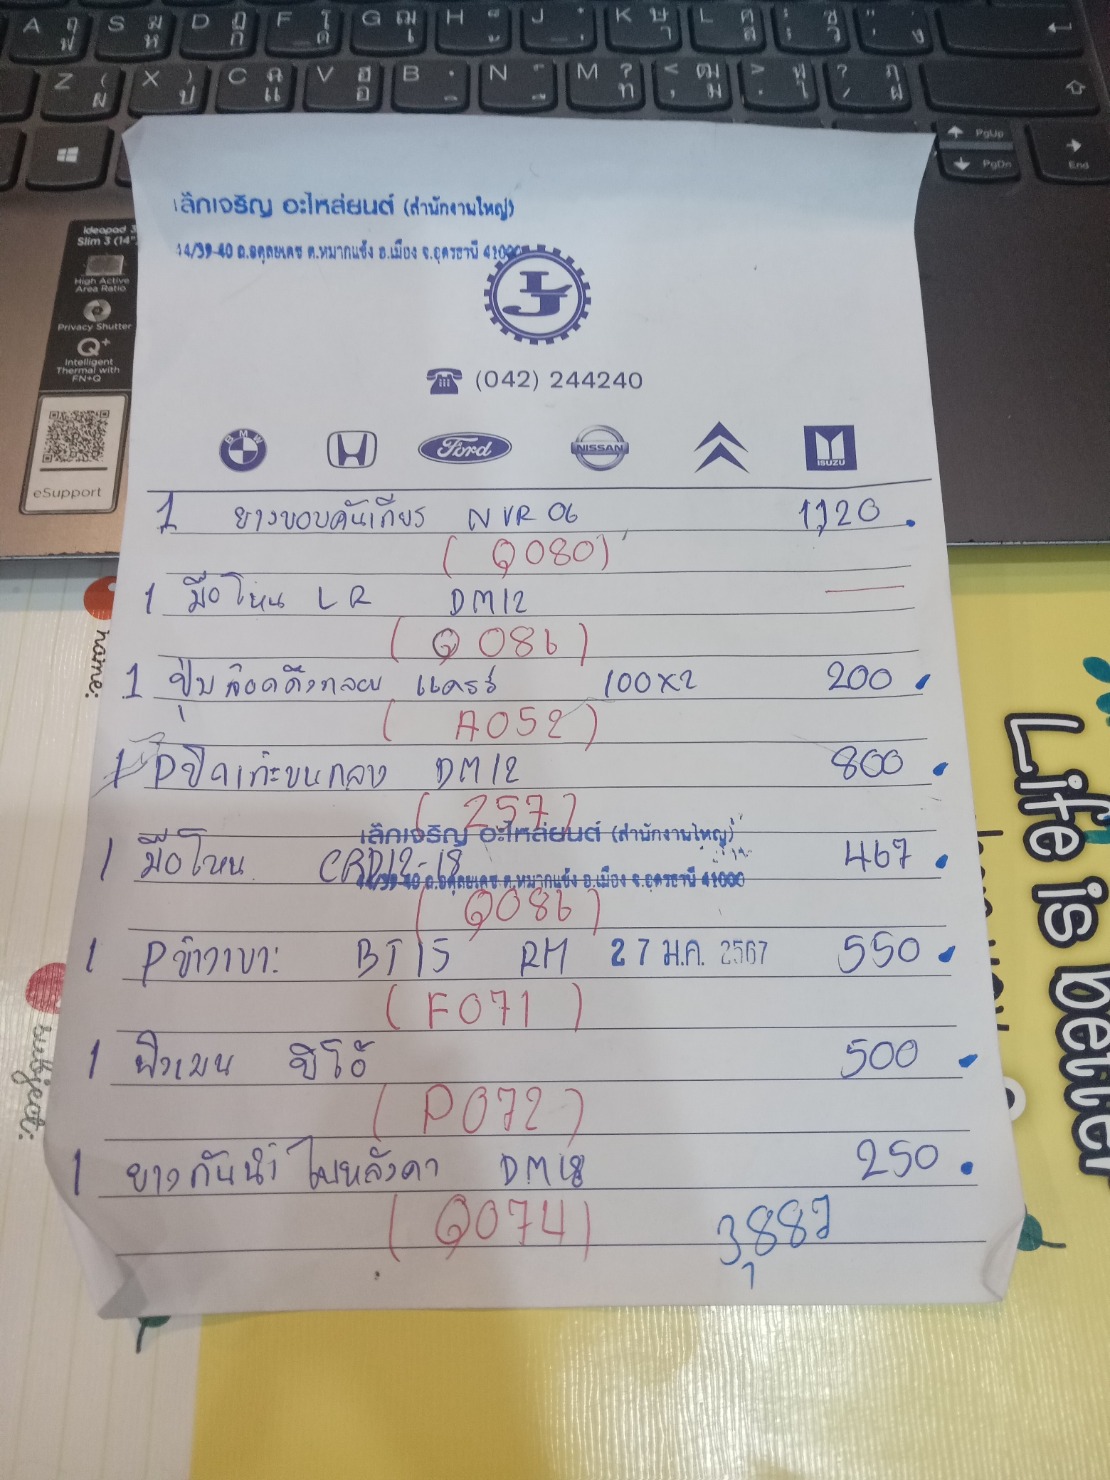 A ฤ ฟ S ฆ ห D ฏ ก F โ ด G ฌ เ H ็ ้ J ๋ ่ K ษ า L ศ ส ; ซ ว " . ' ง
Z ( ผ X ) ป C ฉ แ V ฮ อ B ฺ ิ N ์ ื M ? ท < ฒ , ม > ฬ . ใ ? ฦ / ฝ
PgUp
PgDn
End
ideapad 3
Slim 3 (14"
High Active
Area Ratio
Privacy Shutter
Q+
Intelligent
Thermal with
FN+Q
eSupport
เล็กเจริญ อะไหล่ยนต์ (สำนักงานใหญ่)
44/39-40 ถ.อดุลยเดช ต.หมากแข้ง อ.เมือง จ.อุดรธานี 41000
LJ
(042) 244240
BMW
Ford
NISSAN
ISUZU
1 ยางขอบคันเกียร NVR 06 1,120
(Q080)
1 มือโหน LR DM12
(Q086)
1 100x2 200
(A052)
1 DM12 800
(257)
เล็กเจริญ อะไหล่ยนต์ (สำนักงานใหญ่)
1 มือโหน CRD12-18 467
44/39-40 ถ.อดุลยเดช ต.หมากแข้ง อ.เมือง จ.อุดรธานี 41000
(Q086)
1 BT15 RH 27 ม.ค. 2567 550
(F071)
1 500
(P072)
1 ยางกันน้ำ ใบหลังคา DM18 250
(Q074)
3,887
name:
subject:
Life is better